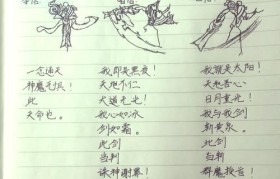 一念通天
神魔无惧!
此
天命也。
我即是黑夜!
天地不仁
大道无光!
我心如冰
剑如霜。
此剑
当判
诛神谢罪!
我就是太阳!
天地吾心
日月重光!
我与我剑
斩黄泉。
此剑
当判
群魔授首!